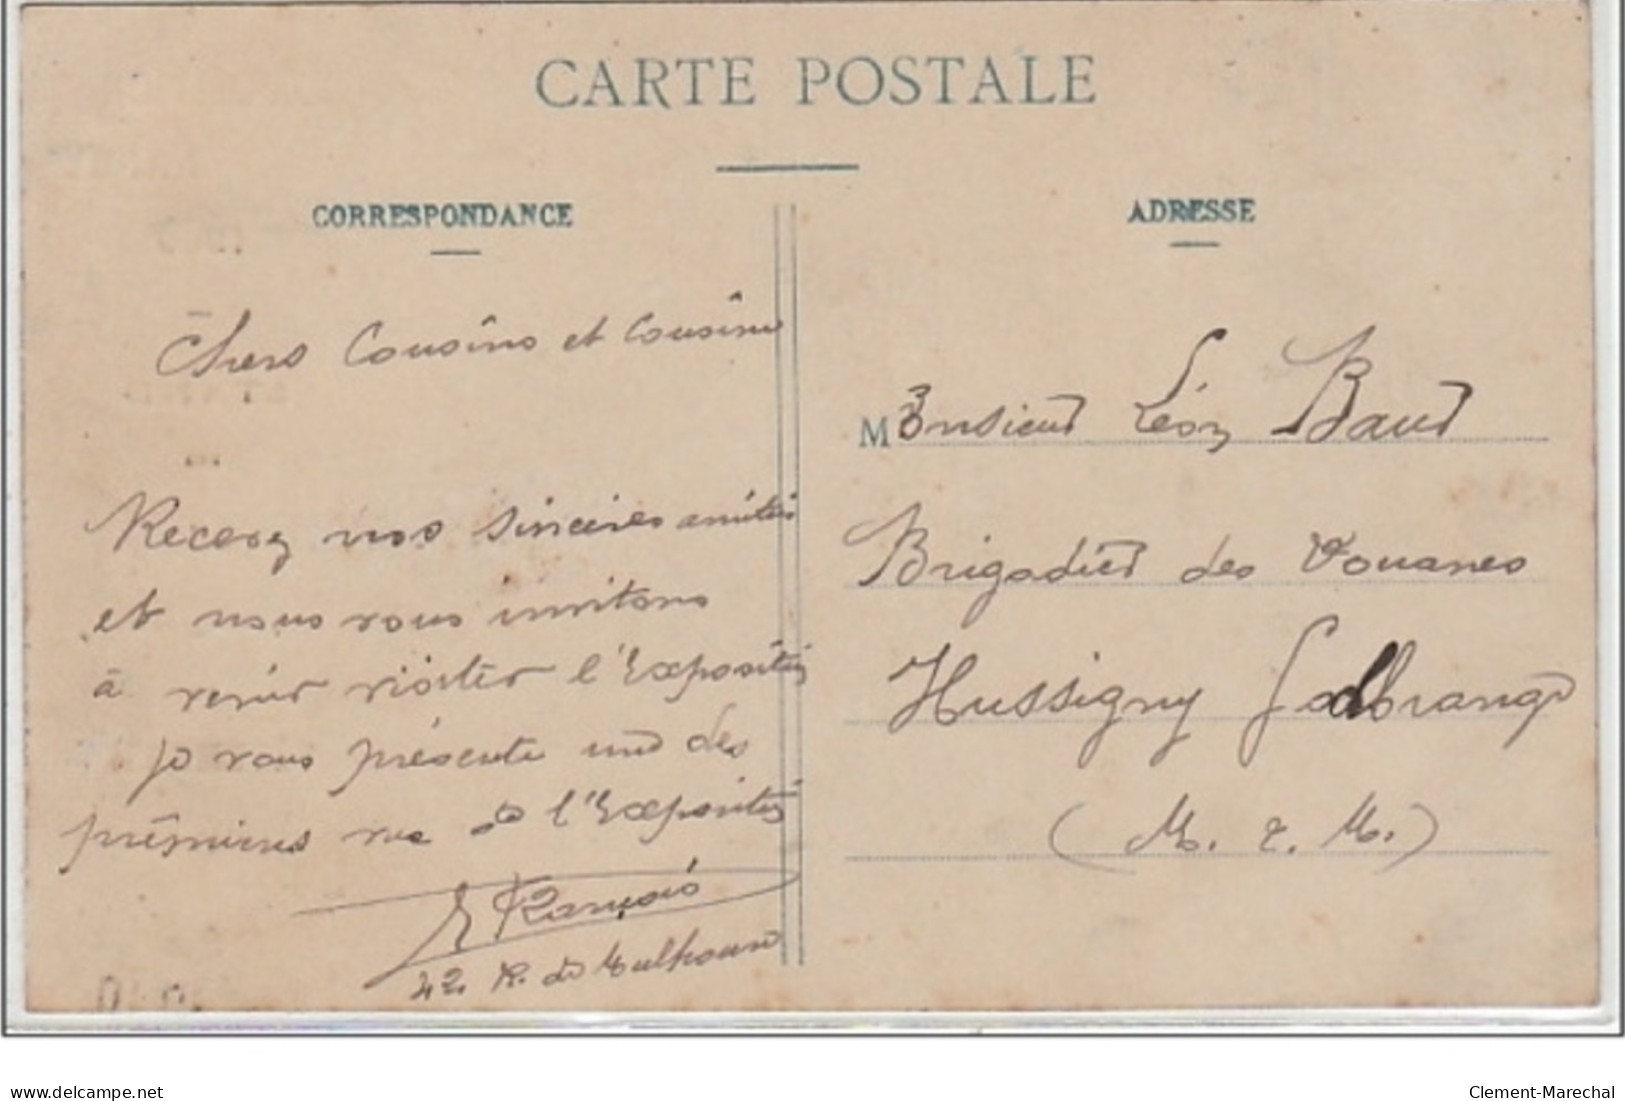 CARTE POSTALE
CORRESPONDANCE
ADRESSE
Chers Cousins et Cousine
Recevez nos sincères amitiés
et nous vous invitons
à venir visiter l'Exposition
je vous présente une des
prêmières vue de l'Exposition
42 R. de Mulhouse
Monsieur Léon Baud
Brigadier des Douanes
Hussigny Godbrange
(M. & M.)
delcampe.net
Clement-Marechal